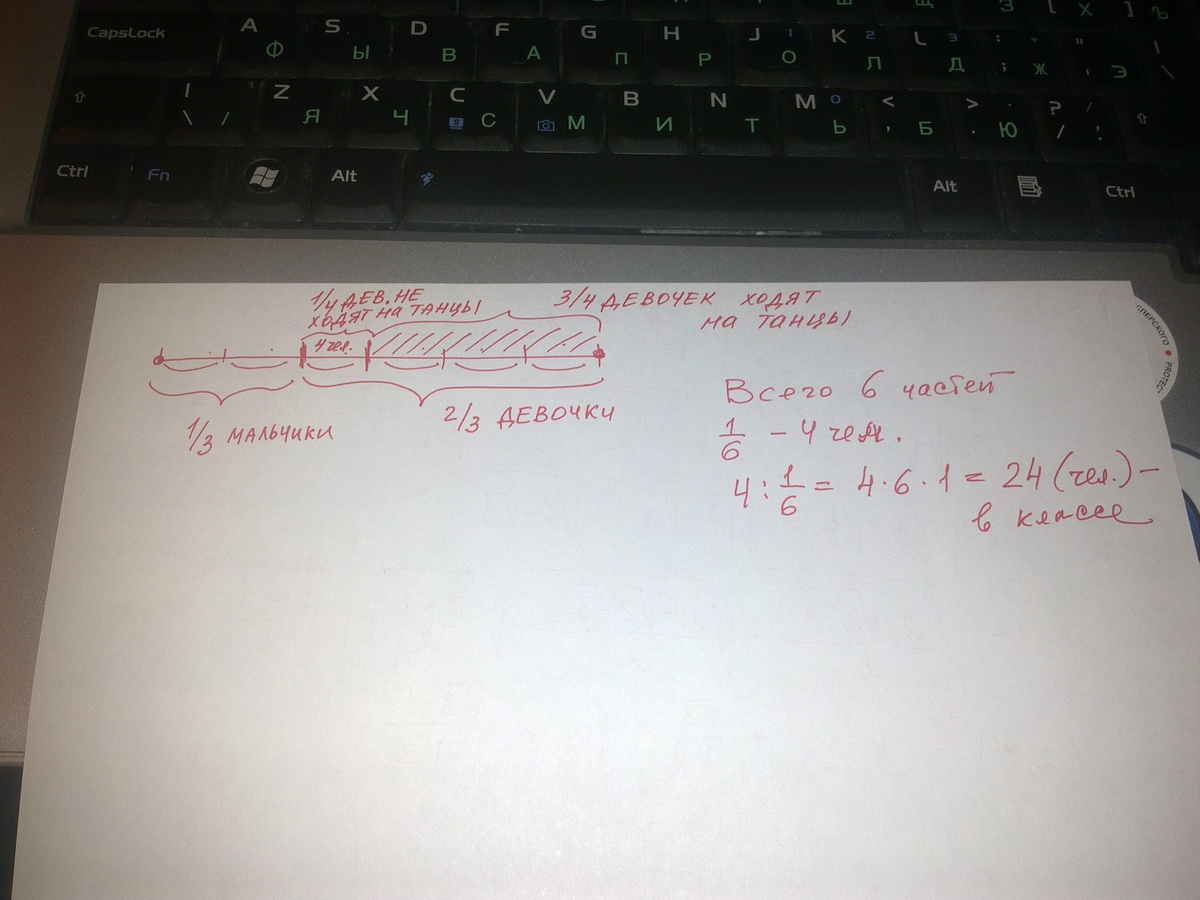 З [ Х ] Ъ
CapsLock A Ф S Ы D В F А G П H Р J 1 О K 2 Л L 3 Д : ; Ж " ' Э \
⇧ | \ / Z Я X Ч C С V М B И N Т M 0 Ь < , Б > . Ю ? / ⇧
Ctrl Fn Alt Alt Ctrl
1/4 ДЕВ. НЕ
ХОДЯТ НА ТАНЦЫ
3/4 ДЕВОЧЕК ХОДЯТ
НА ТАНЦЫ
4 чел.
1/3 МАЛЬЧИКИ
2/3 ДЕВОЧКИ
Всего 6 частей
1/6 - 4 чел.
4 : 1/6 = 4 · 6 · 1 = 24 (чел.) -
в классе
ПЕРСКОГО • PROTEC